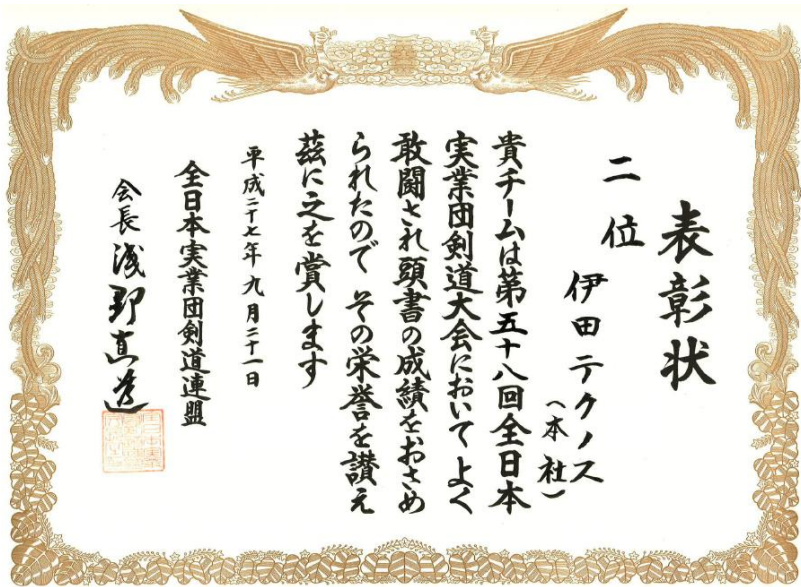 表彰状
二位
伊田テクノス
（本社）
貴チームは第五十八回全日本
実業団剣道大会においてよく
敢闘され頭書の成績をおさめ
られたので その栄誉を讃え
茲に之を賞します
平成二十七年九月二十一日
全日本実業団剣道連盟
会長 浅野直道